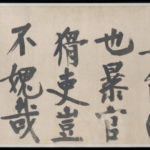 也暴官
猾吏豈
不愧哉